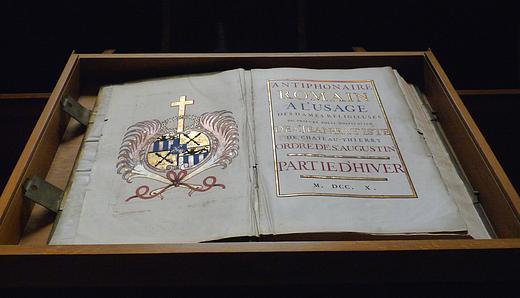 ANTIPHONAIRE
ROMAIN
A L'USAGE
DES DAMES RELIGIEUSES
DE CHATEAU-THIERRY
ORDRE DE S. AUGUSTIN
PARTIE D'HIVER
M. DCC. X.